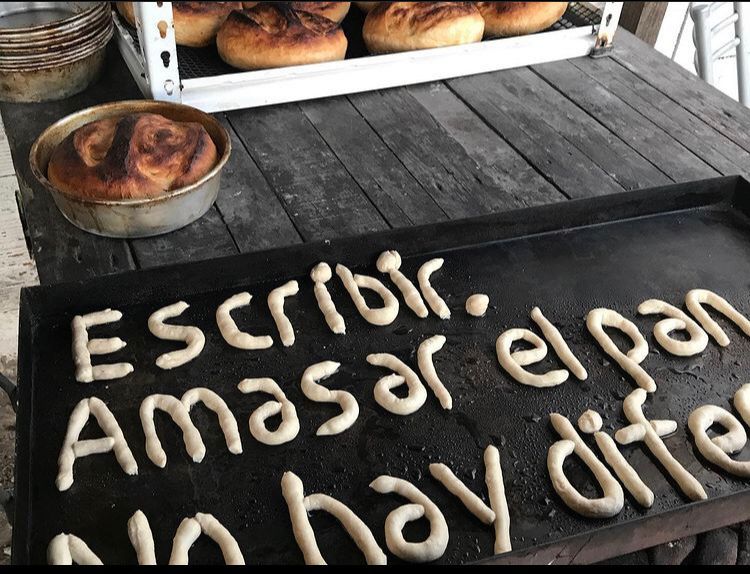 Escribir.
Amasar el pan
No hay dife